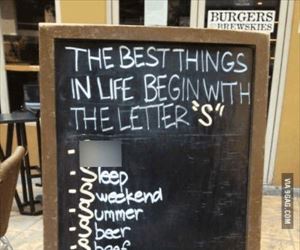 BURGERS
BREWSKIES
THE BEST THINGS
IN LIFE BEGIN WITH
THE LETTER "S"
Sleep
Sweekend
Summer
Sbeer
VIA 9GAG.COM